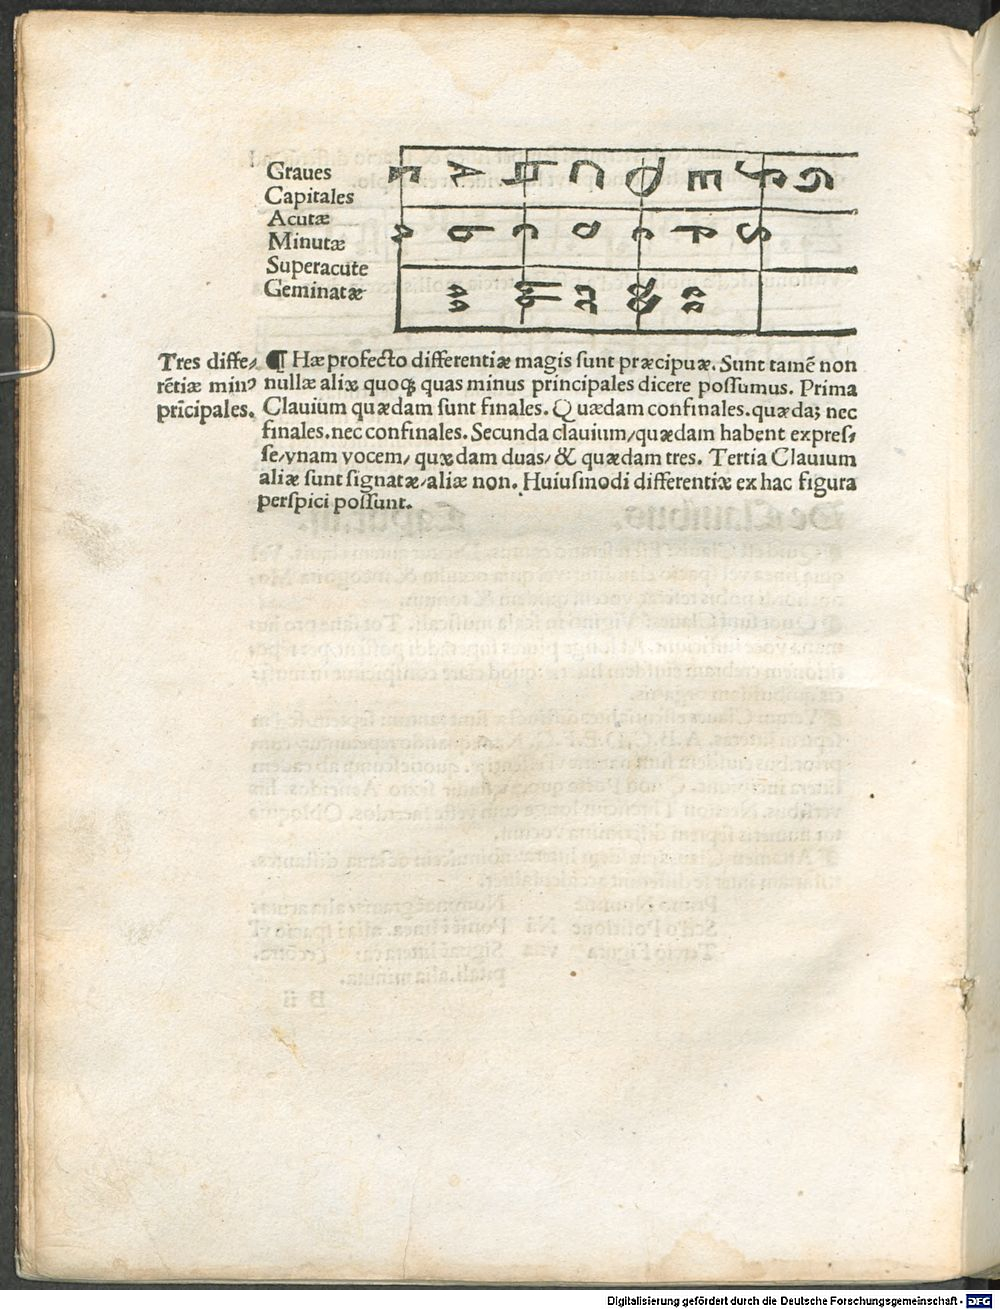 Graues
Capitales
Acutæ
Minutæ
Superacute
Geminatæ
Γ A B C D E F G
a b c d e f g
aa bb cc dd ee
Tres diffe⸗
rẽtiæ minꝰ
pricipales.
¶ Hæ profecto differentiæ magis sunt præcipuæ. Sunt tamẽ non
nullæ aliæ quoqꝫ quas minus principales dicere possumus. Prima
Clauium quædam sunt finales. Quædam confinales. quædaꝫ nec
finales. nec confinales. Secunda clauium/ quædam habent expres⸗
se/ vnam vocem/ quædam duas/ & quædam tres. Tertia Clauium
aliæ sunt signatæ/ aliæ non. Huiusmodi differentiæ ex hac figura
perspici possunt.
Digitalisierung gefördert durch die Deutsche Forschungsgemeinschaft - DFG